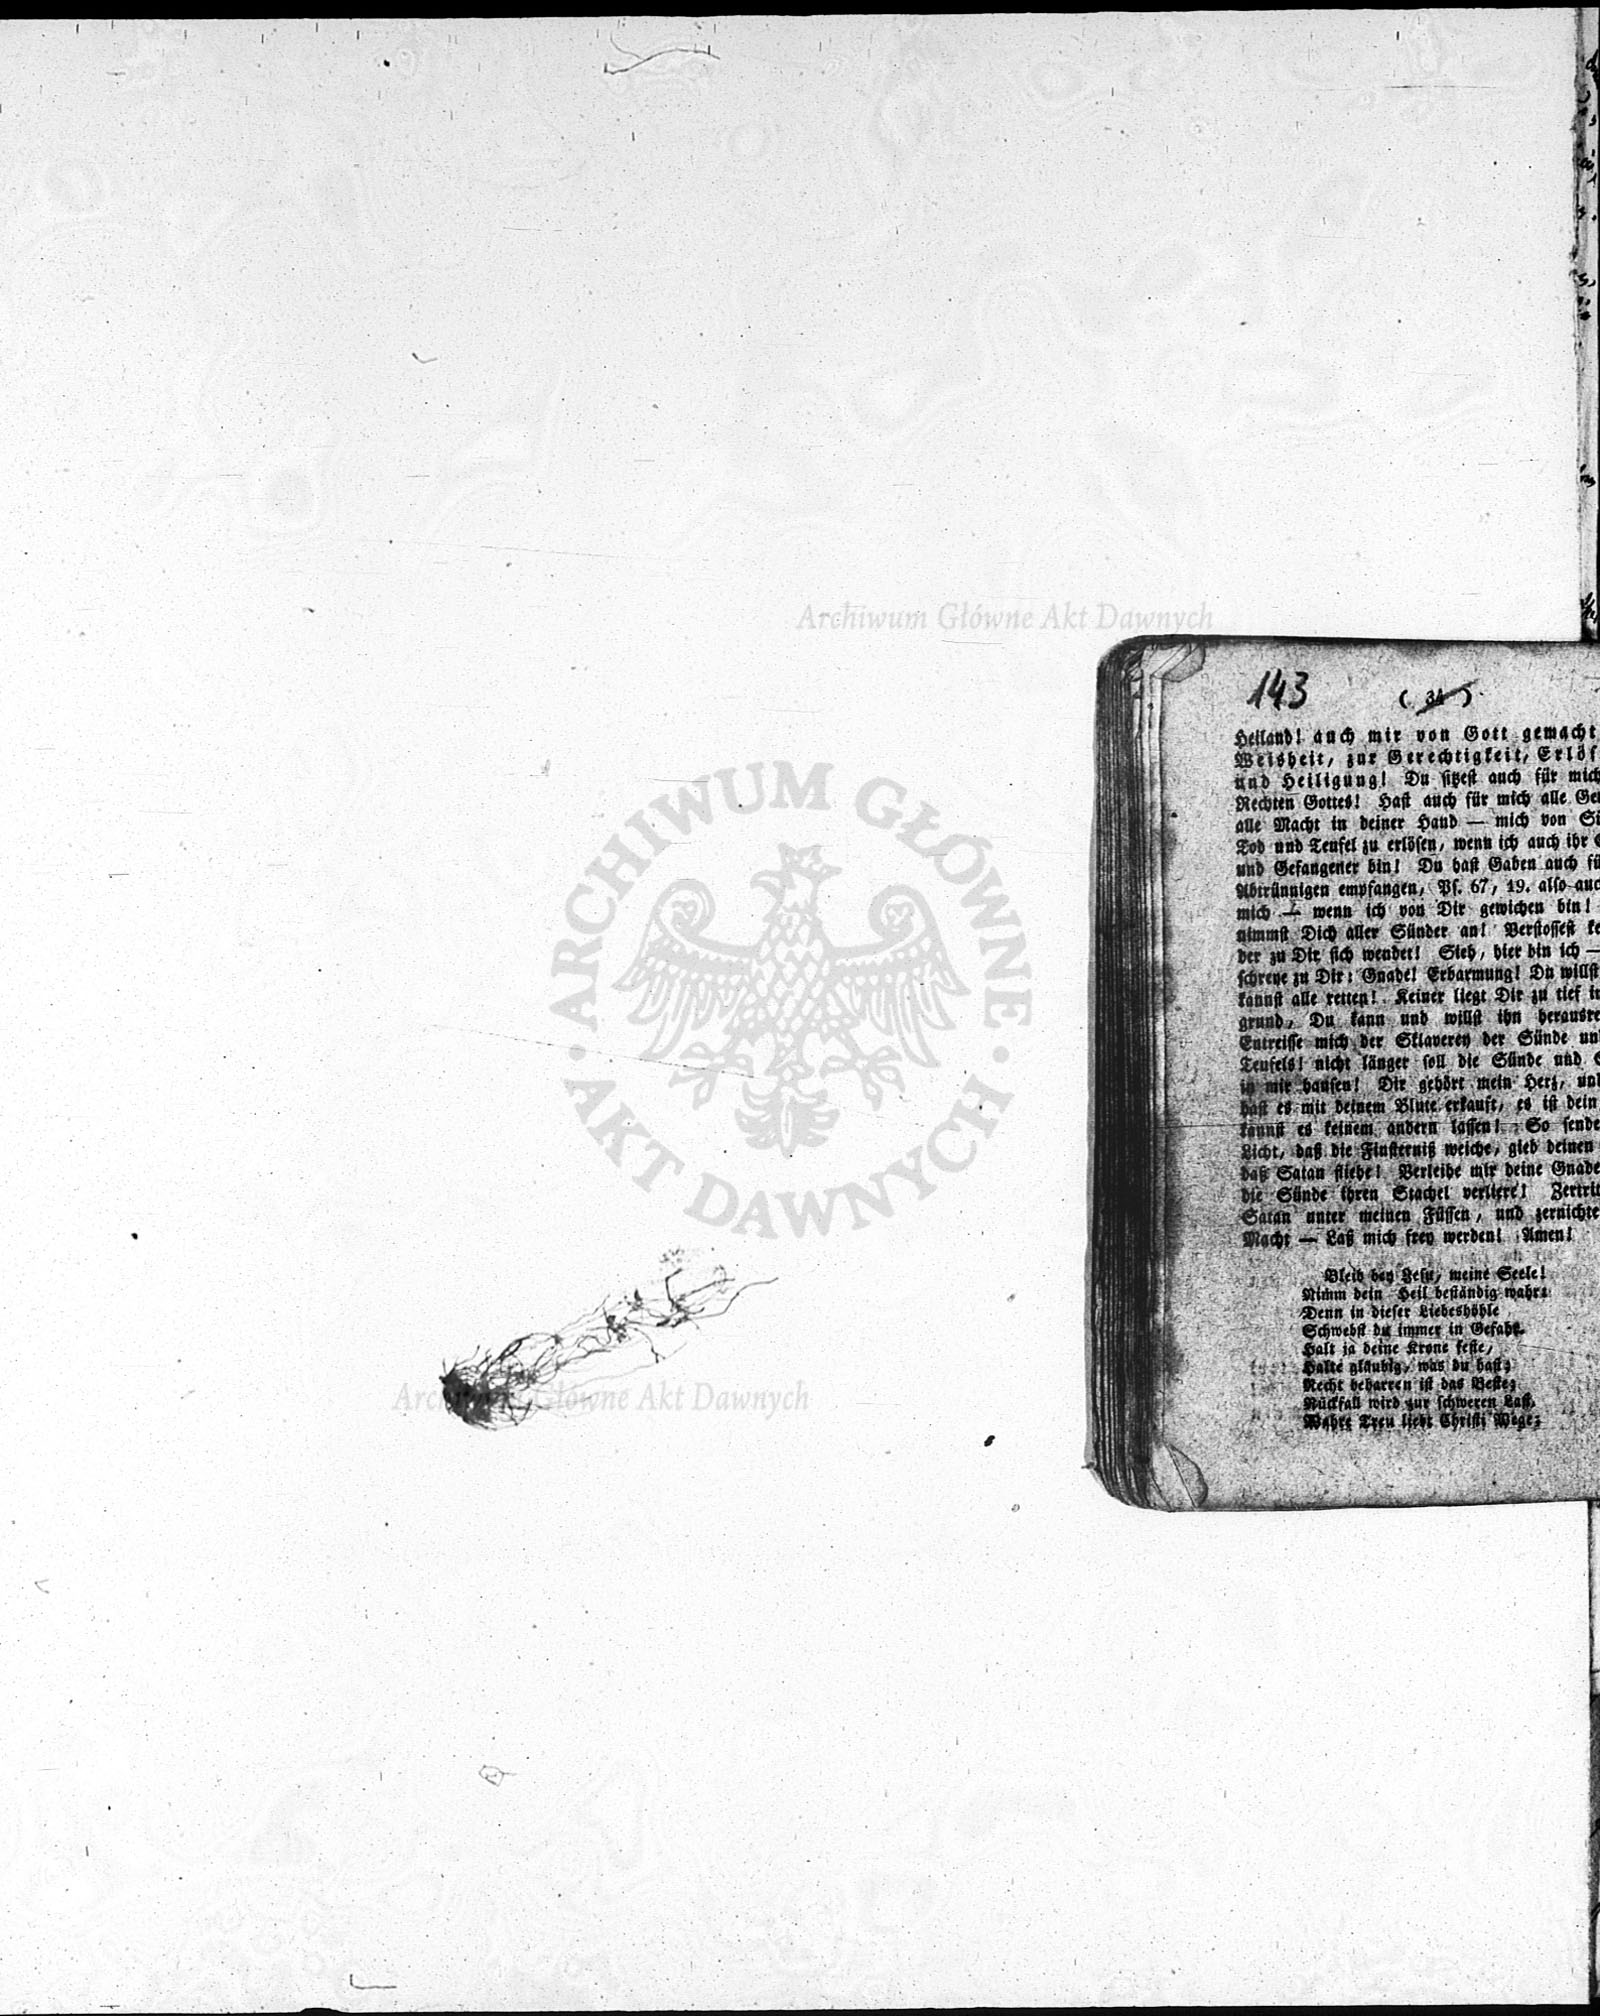 Archiwum Główne Akt Dawnych
143
( 34 )
Heiland! auch mir von Gott gemacht
Weisheit, zur Gerechtigkeit, Erlös
und Heiligung! Du sitzest auch für mich
Rechten Gottes! Hast auch für mich alle Ge
alle Macht in deiner Hand — mich von Sü
Tod und Teufel zu erlösen, wenn ich auch ihr
und Gefangener bin! Du hast Gaben auch fü
Abtrünnigen empfangen, Ps. 67, 19. also auc
mich — wenn ich von Dir gewichen bin!
nimmst Dich aller Sünder an! Verstossest ke
der zu Dir sich wendet! Sieh, hier bin ich —
schreye zu Dir: Gnade! Erbarmung! Du willst
kannst alle retten! Keiner liegt Dir zu tief i
grund, Du kann und willst ihn herausre
Entreisse mich der Sklaverey der Sünde un
Teufels! nicht länger soll die Sünde und
in mir hausen! Dir gehört mein Herz, un
hast es mit deinem Blute erkauft, es ist dein
kannst es keinem andern lassen! So sende
Licht, daß die Finsterniß weiche, gieb deinen
daß Satan fliehe! Verleihe mir deine Gnade
die Sünde ihren Stachel verliere! Zertrit
Satan unter meinen Füssen, und zernichte
Macht — Laß mich frey werden! Amen!
Bleib bey Jesu, meine Seele!
Nimm dein Heil beständig wahr:
Denn in dieser Liebeshöhle
Schwebst du immer in Gefahr.
Halt ja deine Krone feste,
Halte gläubig, was du hast;
Recht beharren ist das Beste;
Rückfall wird zur schweren Last.
Wahre Treu liebt Christi Wege;
ARCHIWUM GŁÓWNE
AKT DAWNYCH
Archiwum Główne Akt Dawnych